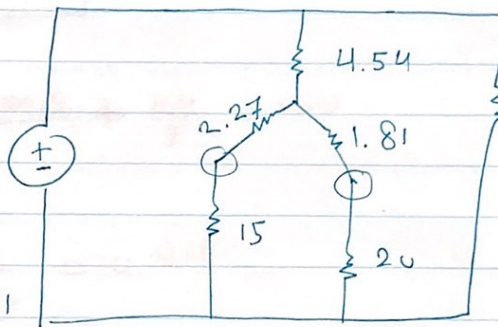 4.54
2.27
1.81
+
-
15
20
1